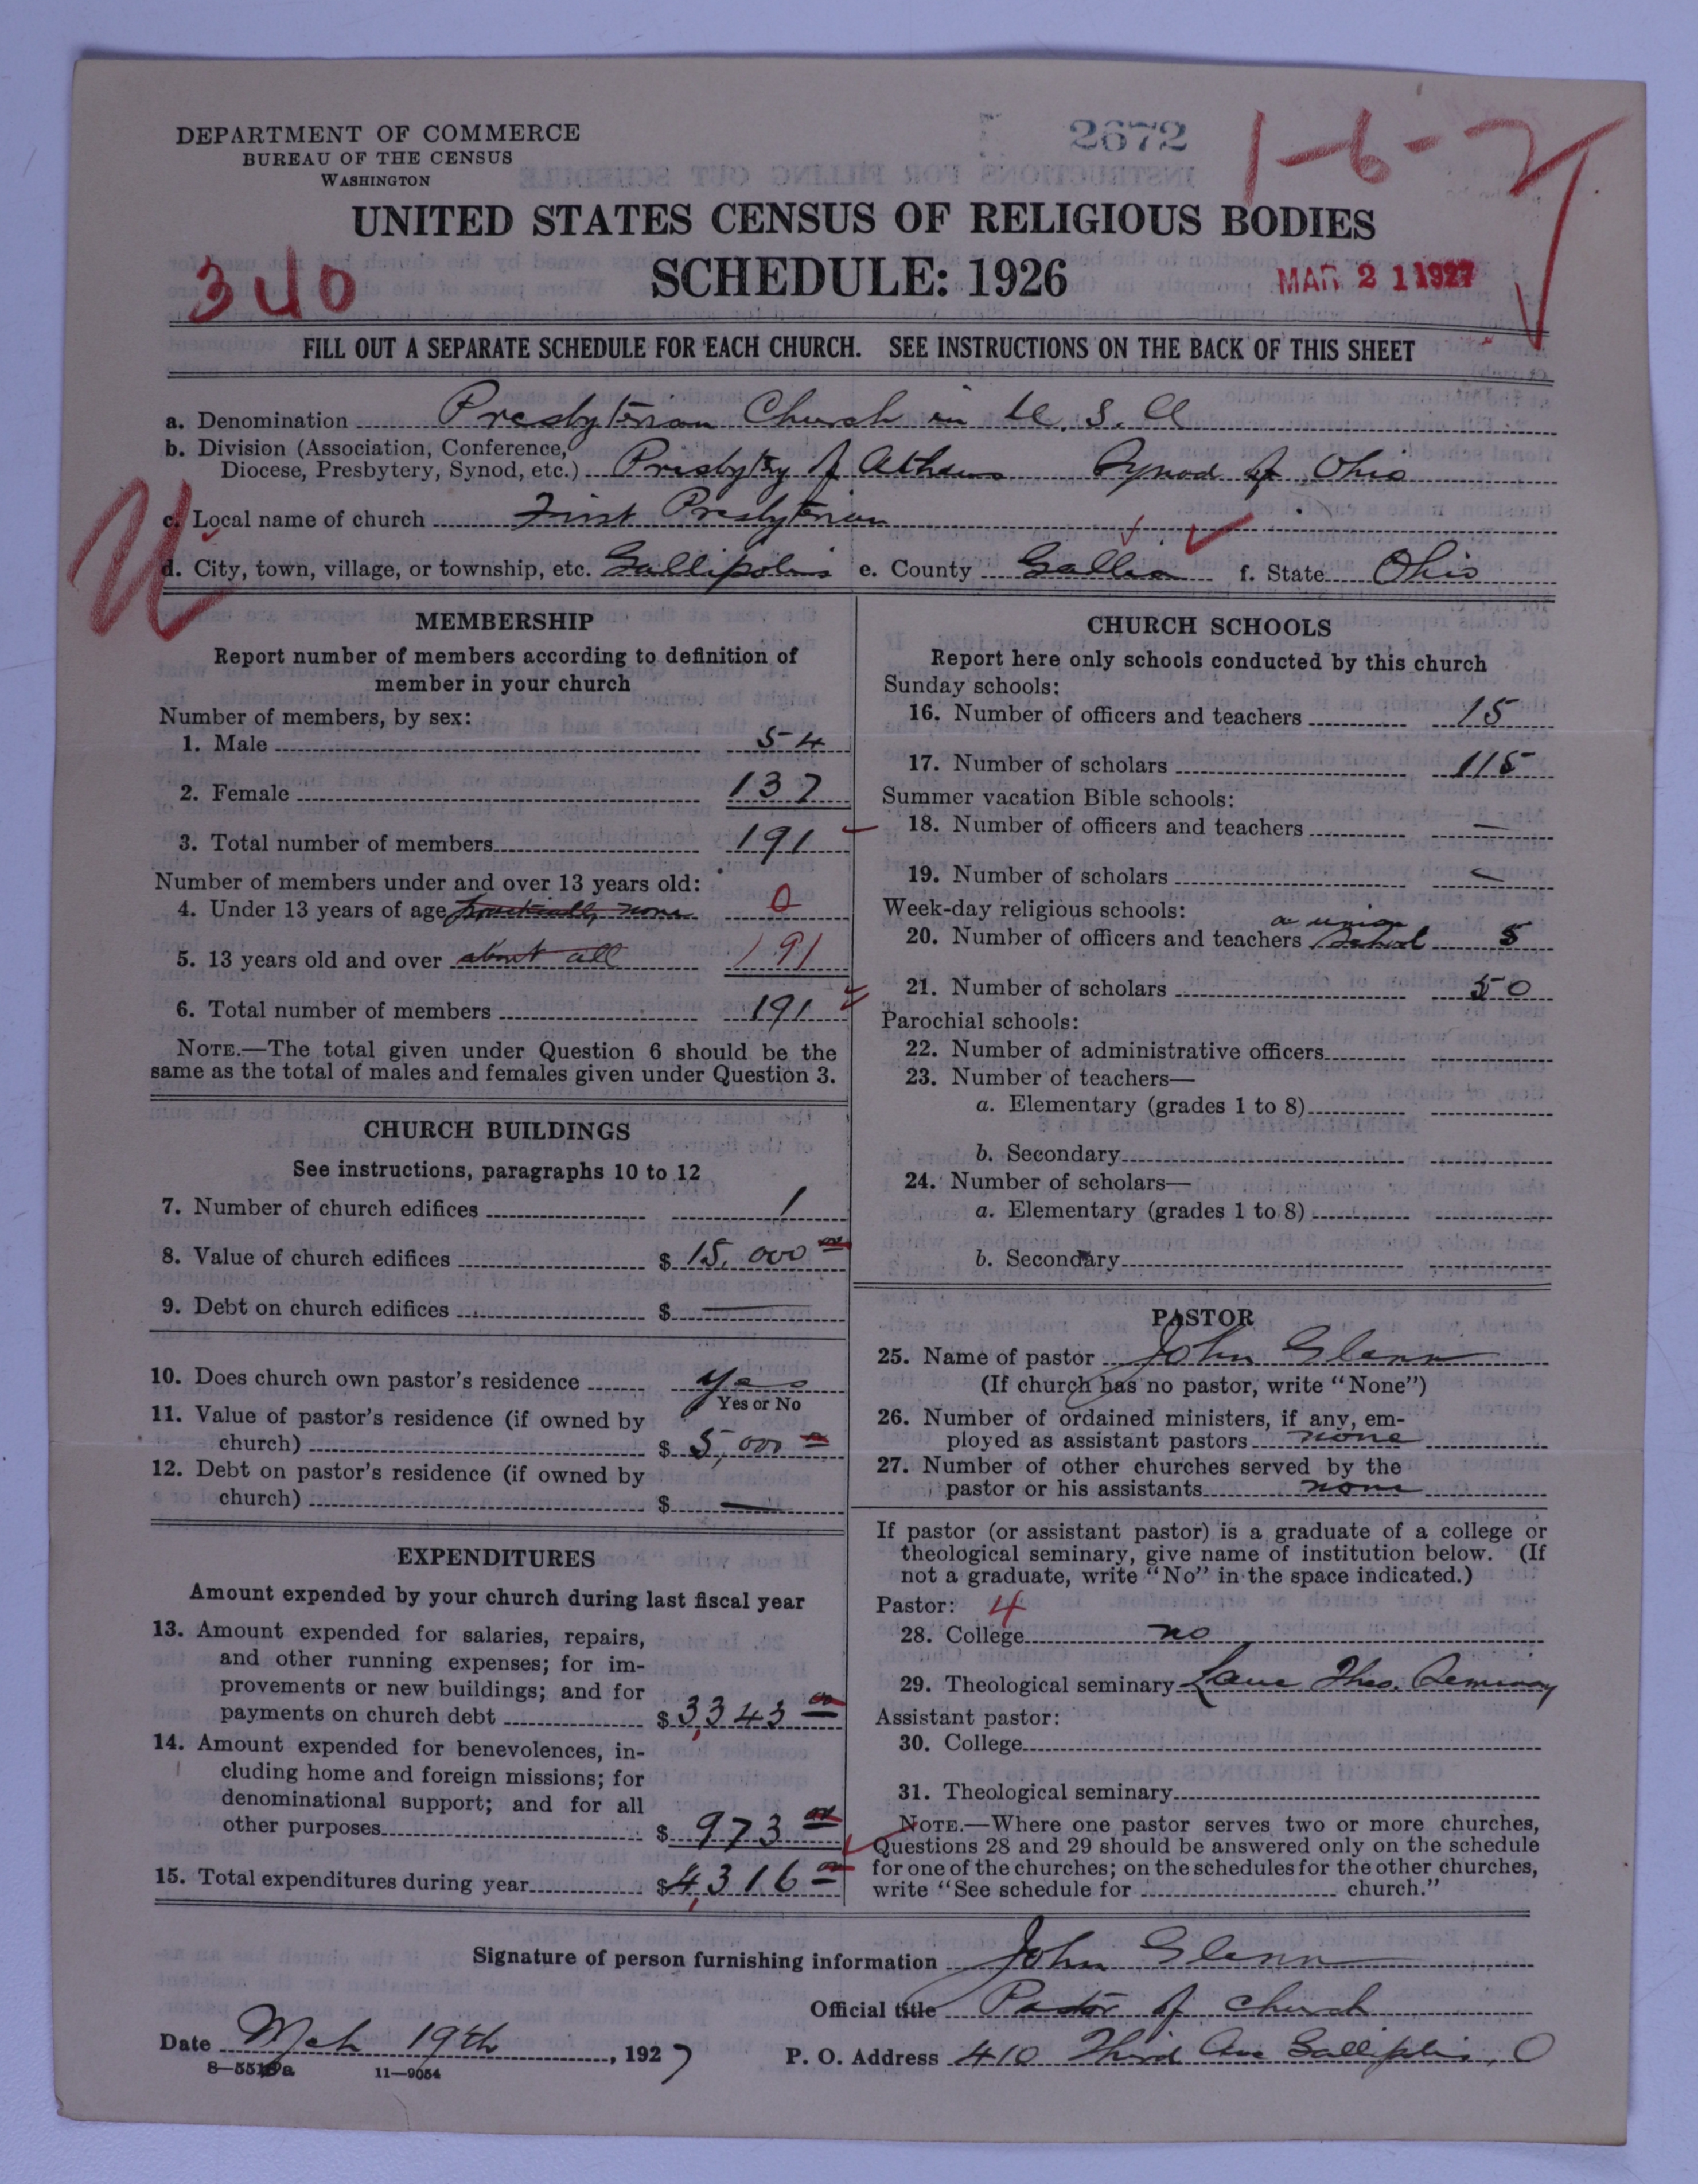 DEPARTMENT OF COMMERCE
BUREAU OF THE CENSUS
WASHINGTON
2672
1-6-2
UNITED STATES CENSUS OF RELIGIOUS BODIES
340
SCHEDULE: 1926
MAR 21 1927
FILL OUT A SEPARATE SCHEDULE FOR EACH CHURCH. SEE INSTRUCTIONS ON THE BACK OF THIS SHEET
a. Denomination Presbyterian Church in U. S. A
b. Division (Association, Conference,
Diocese, Presbytery, Synod, etc.) Presbytery of Athens Synod of Ohio
c. Local name of church First Presbyterian
d. City, town, village, or township, etc. Gallipolis e. County Gallia f. State Ohio
MEMBERSHIP
Report number of members according to definition of
member in your church
Number of members, by sex:
1. Male 54
2. Female 137
3. Total number of members 191
Number of members under and over 13 years old:
4. Under 13 years of age practically none 0
5. 13 years old and over about all 191
6. Total number of members 191
NOTE.—The total given under Question 6 should be the
same as the total of males and females given under Question 3.
CHURCH BUILDINGS
See instructions, paragraphs 10 to 12
7. Number of church edifices 1
8. Value of church edifices $ 15,000 00
9. Debt on church edifices $ —
10. Does church own pastor's residence Yes
Yes or No
11. Value of pastor's residence (if owned by
church) $ 5,000 00
12. Debt on pastor's residence (if owned by
church) $ —
EXPENDITURES
Amount expended by your church during last fiscal year
13. Amount expended for salaries, repairs,
and other running expenses; for im-
provements or new buildings; and for
payments on church debt $ 3,343 00
14. Amount expended for benevolences, in-
cluding home and foreign missions; for
denominational support; and for all
other purposes $ 973 00
15. Total expenditures during year $ 4,316 00
CHURCH SCHOOLS
Report here only schools conducted by this church
Sunday schools:
16. Number of officers and teachers 15
17. Number of scholars 115
Summer vacation Bible schools:
18. Number of officers and teachers —
19. Number of scholars —
Week-day religious schools:
a union
20. Number of officers and teachers school 5
21. Number of scholars 50
Parochial schools:
22. Number of administrative officers
23. Number of teachers—
a. Elementary (grades 1 to 8)
b. Secondary
24. Number of scholars—
a. Elementary (grades 1 to 8)
b. Secondary
PASTOR
25. Name of pastor John Glenn
(If church has no pastor, write "None")
26. Number of ordained ministers, if any, em-
ployed as assistant pastors none
27. Number of other churches served by the
pastor or his assistants none
If pastor (or assistant pastor) is a graduate of a college or
theological seminary, give name of institution below. (If
not a graduate, write "No" in the space indicated.)
Pastor: 4
28. College no
29. Theological seminary Lane Theo. Seminary
Assistant pastor:
30. College
31. Theological seminary
NOTE.—Where one pastor serves two or more churches,
Questions 28 and 29 should be answered only on the schedule
for one of the churches; on the schedules for the other churches,
write "See schedule for church."
Signature of person furnishing information John Glenn
Official title Pastor of Church
Date Mch 19th, 1927
P. O. Address 410 Third Ave Gallipolis, O
11—9054